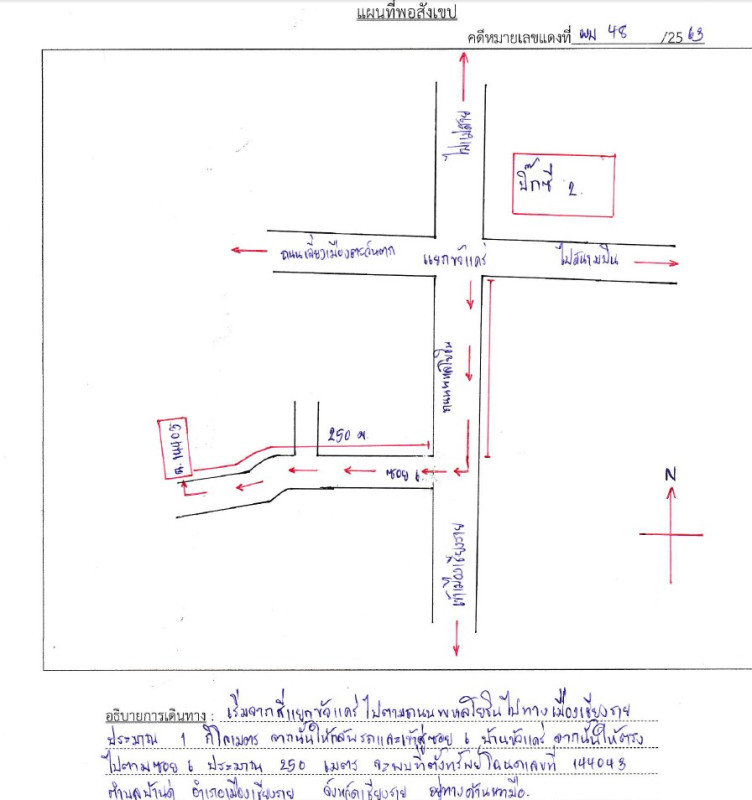 แผนที่พอสังเขป
คดีหมายเลขแดงที่ ผบ 48 /25 63
ไปแม่สาย
บิ๊กซี 2
ถนนเลี่ยงเมืองตะวันตก
แยกขัวแคร่
ไปสนามบิน
ถนนพหลโยธิน
250 ม.
ซอย 6
N
เข้าเมืองเชียงราย
อธิบายการเดินทาง : เริ่มจากสี่แยกขัวแคร่ ไปตามถนนพหลโยธินไปทางเมืองเชียงราย
ประมาณ 1 กิโลเมตร จากนั้นให้กลับรถและเข้าสู่ซอย 6 บ้านขัวแคร่ จากนั้นให้ตรง
ไปตามซอย 6 ประมาณ 250 เมตร จะพบที่ตั้งทรัพย์โฉนดเลขที่ 144043
ตำบลบ้านดู่ อำเภอเมืองเชียงราย จังหวัดเชียงราย อยู่ทางด้านขวามือ.